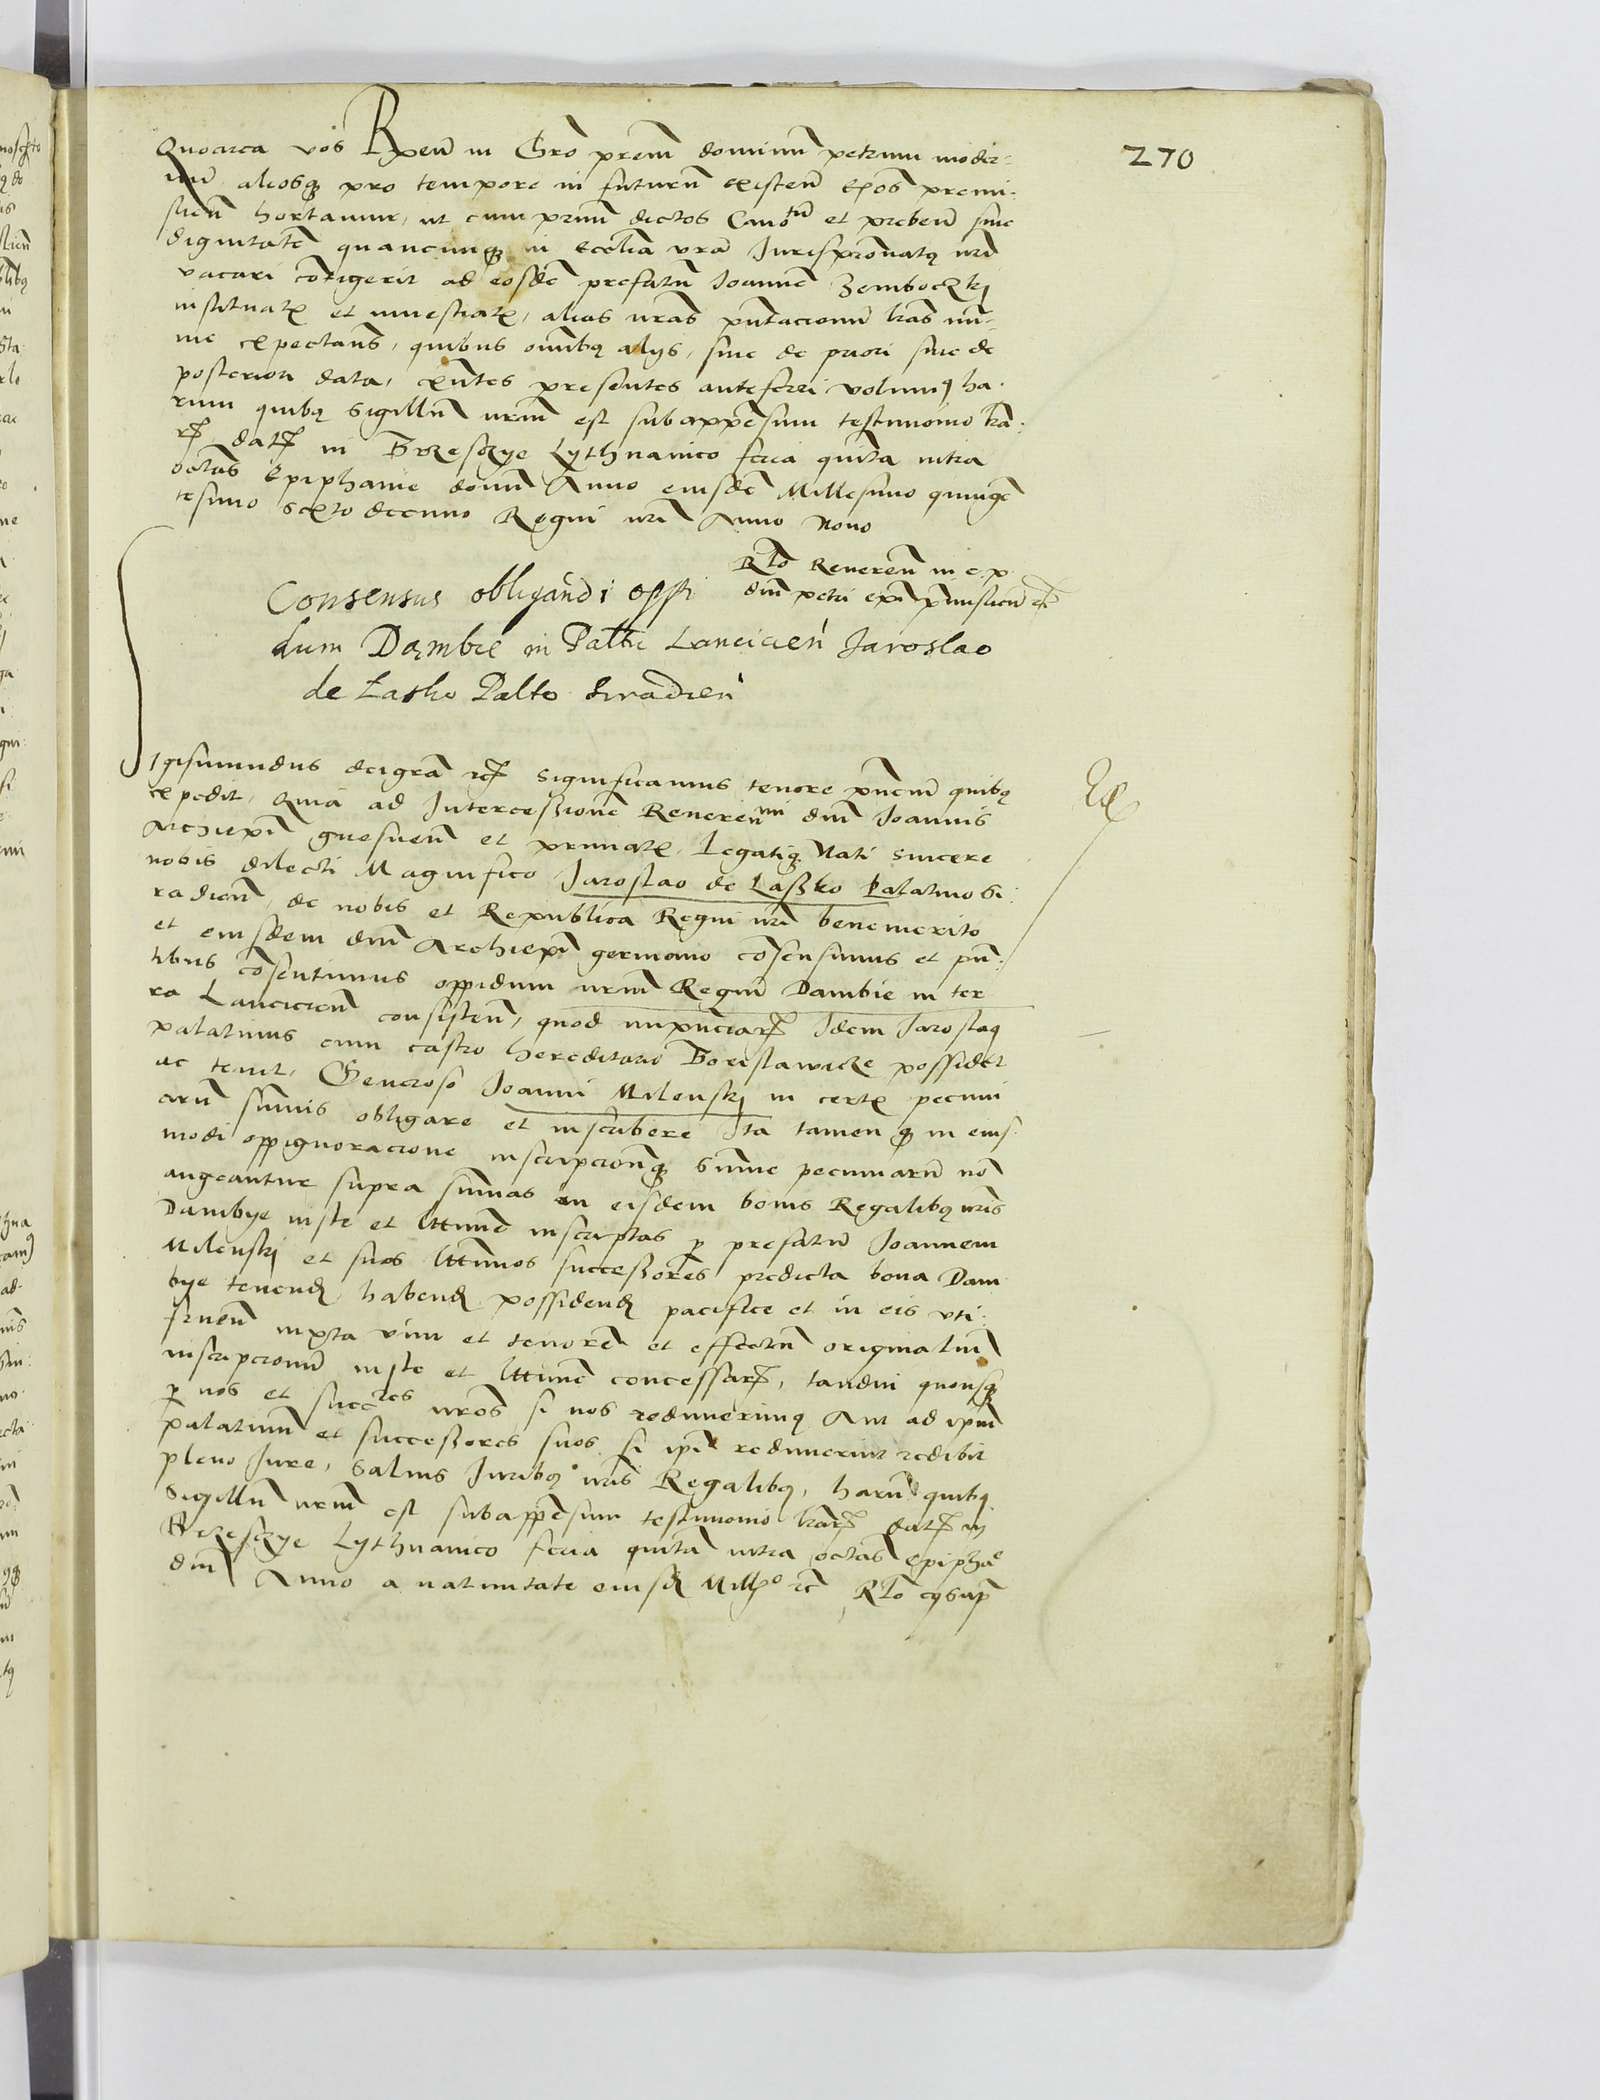 270
Quocirca vos Rxeñ in Chrõ prem dominũ petrum moder:
nũ aliosq pro tempore in futurũ existeñ Epos premi:
slień hortamur, ut cum primũ dictos Cano^tũ et prebeñ siue
dignitatẽ quancunq in Ecclia vrã Jurispronatq nri
vacari cõtigerit ad eosdẽ prefatũ Joannẽ Zemboczkj
instituatz et inuestiatz, alias nras pñtacionũ lras mi:
me expectans, quibus omnibq alys, siue de priori siue de
posteriori data, exntes presentes anteferri volumq ha:
rum quibq Sigillũ nrm est subappẽsum testimonio lra:
rz datz in Brzesczye Lythuanico feria quinta intra
octãs Epiphanie domĩ Anno eiusdẽ Millesimo quingẽ
tesimo sexto decimo Regni nri Anno Nono
Rlõ Reuereñ in c. p.
dm̃ petri epĩ pmislień etc
Consensus obligandi oppi
dum Dąmbie in Paltu Lancicień Jaroslao
de Lasko Palto Siradień
Igismundus deigrã rcz significamus tenore pñciũ quibq
expedit, Quia ad Intercessionẽ Reueren^mi dm̃ Joannis
Archiepĩ gnesneñ et primatz, Legatiq Nati sincere
nobis dilecti Magnifico Jaroslao de Lassko Palatino Si:
radień, de nobis et Republica Regni nri benemerito
et eiusdem dm̃ Archiepĩ germano cõsensimus et pñ:
tibus cõsentimus oppidum nrm Regiũ Dambie in ter
ra Lancicień consisteñ, quod inpñciarz Idem Jaroslaq
palatinus cum castro hereditario Borislawicze possidet
ac tenet, Generoso Joanni Milenskj in certz pecuni
arũ sũmis obligare et inscribere Ita tamen q in eius:
modi oppignoracione inscripcionẽq sũme pecuniarũ nõ
augeantur supra sũmas in eisdem bonis Regalibq nris
Dambye iuste et lttime inscriptas p prefatũ Joannem
Milenskj et suos lttimos successores predicta bona Dam
bye tenend, habend, possidend pacifice et in eis vti:
frueñ iuxta vim et tenorẽ et effectũ originaliũ
inscripcionũ iuste et lttime concessarz, tandiu quousq
p nos et succ^res nros si nos redimerimq Aut ad ipm
palatinũ et successores suos si ipi redimerint redibit
pleno Jure, Saluis Juribq nris Regalibq, harũ quibq
Sigillũ nrm est subappẽsum testimonio lrarz datz in
Brzesczye Lythuanico feria quinta intra octãs Epiphãe
dm̃ Anno a natiuitate eiusd Mill^mo etc Rlo eiusup